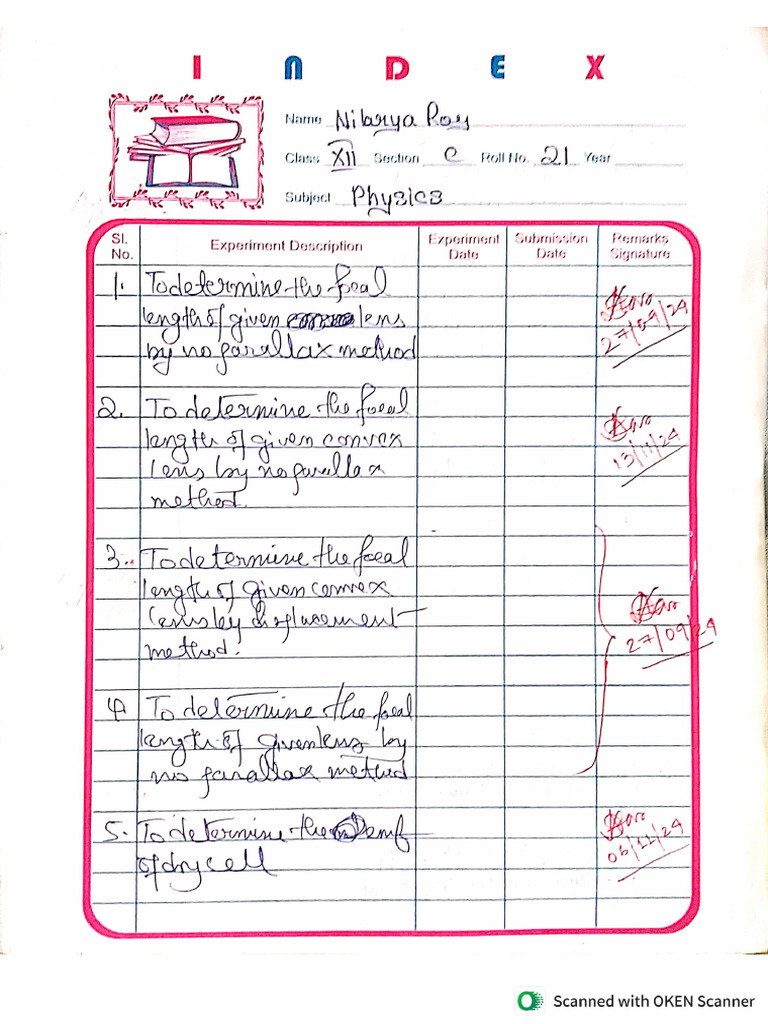 INDEX
Name Nilarya Roy
Class XII Section C Roll No. 21 Year
Subject Physics
Sl. No. Experiment Description Experiment Date Submission Date Remarks Signature
1. To determine the focal
length of given lens
by no parallax method
27/09/24
2. To determine the focal
length of given convex
lens by no parallax
method.
13/11/24
3. To determine the focal
length of given convex
lens by displacement
method.
27/09/24
4 To determine the focal
length of given lens by
no parallax method
5. To determine the emf
of dry cell
06/11/24
Scanned with OKEN Scanner